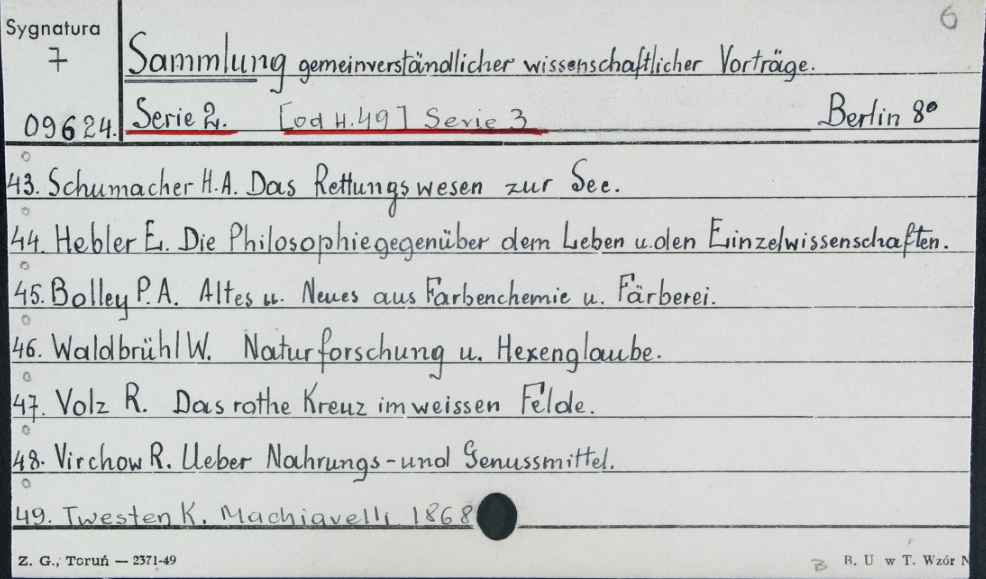 6
Sygnatura
7
Sammlung gemeinverständlicher wissenschaftlicher Vorträge.
09624. Serie 2. [od H.49] Serie 3 Berlin 8°
43. Schumacher H.A. Das Rettungswesen zur See.
44. Hebler E. Die Philosophie gegenüber dem Leben u. den Einzelwissenschaften.
45. Bolley P.A. Altes u. Neues aus Farbenchemie u. Färberei.
46. Waldbrühl W. Naturforschung u. Hexenglaube.
47. Volz R. Das rothe Kreuz im weissen Felde.
48. Virchow R. Ueber Nahrungs- und Genussmittel.
49. Twesten K. Machiavelli 1868
Z. G., Toruń — 2371-49 B. U w T. Wzór N